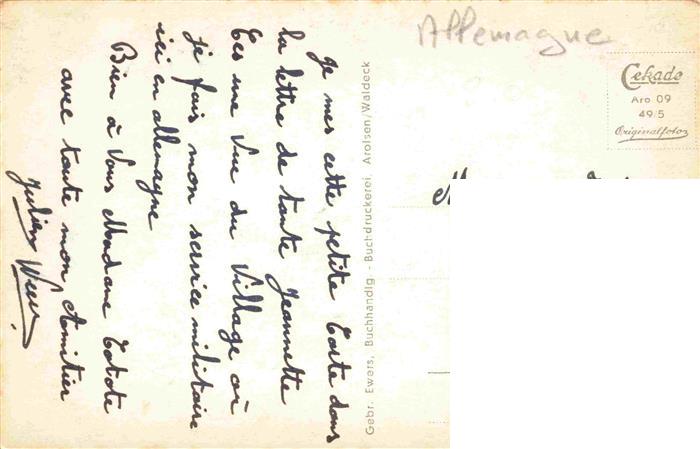 Allemagne
Cekade
Aro 09
49/5
Originalfotos
Je mes cette petite Carte dans
la lettre de tante Jeannette
Ces une Vue du Village où
je fais mon service militaire
ici en allemagne
Bien à Vous Madame Totote
avec toute mon Amitier
Julien
Gebr. Ewers, Buchhandlg. - Buchdruckerei, Arolsen/Waldeck